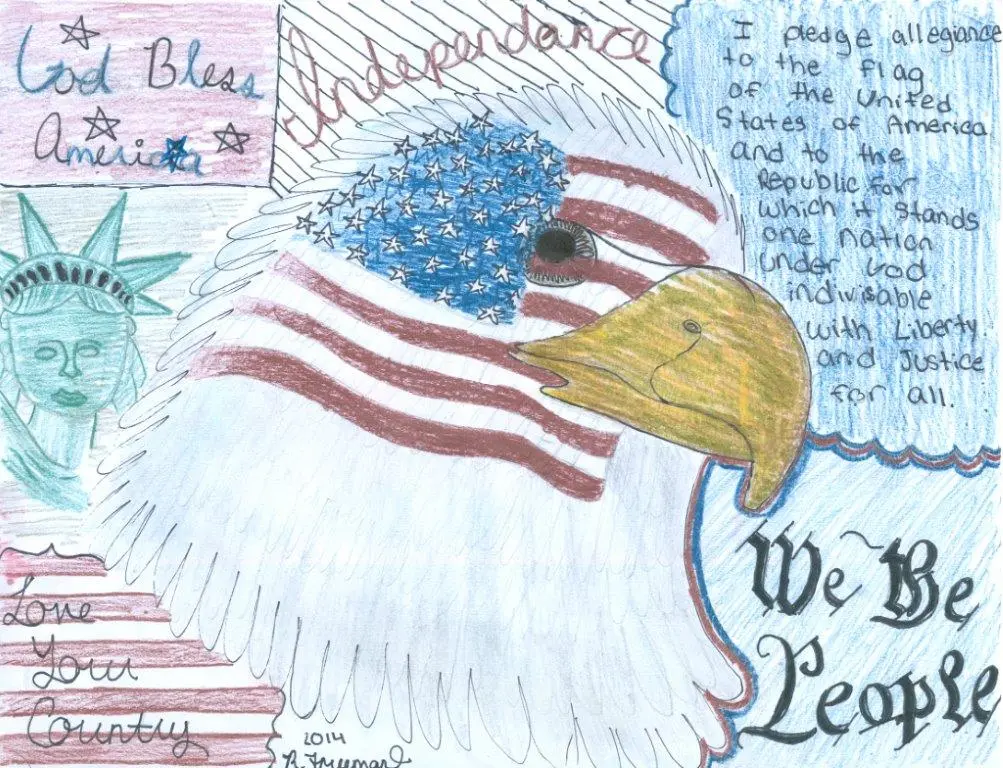 God Bless
America
Independance
I pledge allegiance
to the flag
of the United
States of America
and to the
Republic for
which it stands
one nation
under God
indivisable
with Liberty
and Justice
for all.
We The
People
Love
Your
Country
2014